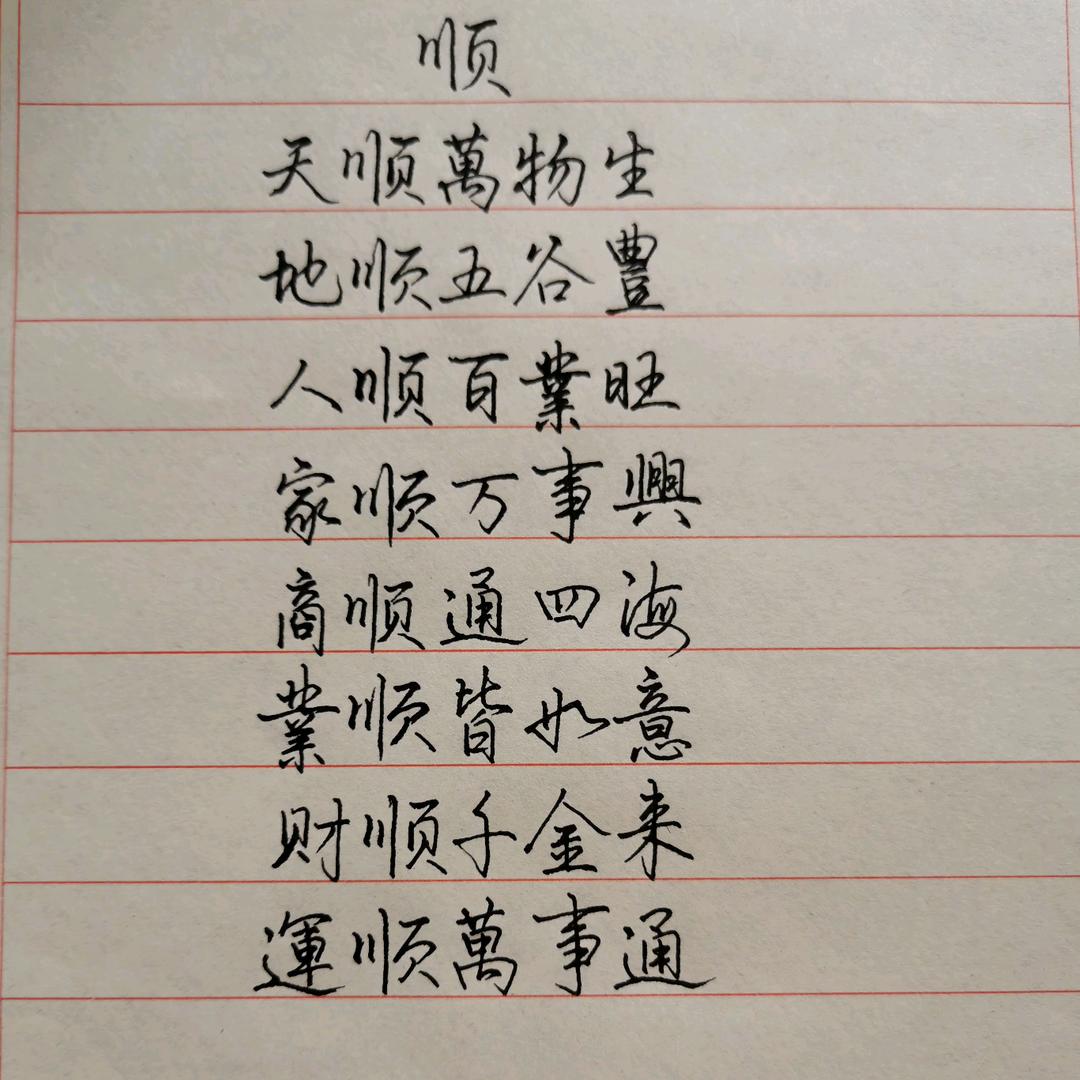 顺
天顺萬物生
地顺五谷豐
人顺百業旺
家顺万事興
商顺通四海
業顺皆如意
财顺千金来
運顺萬事通